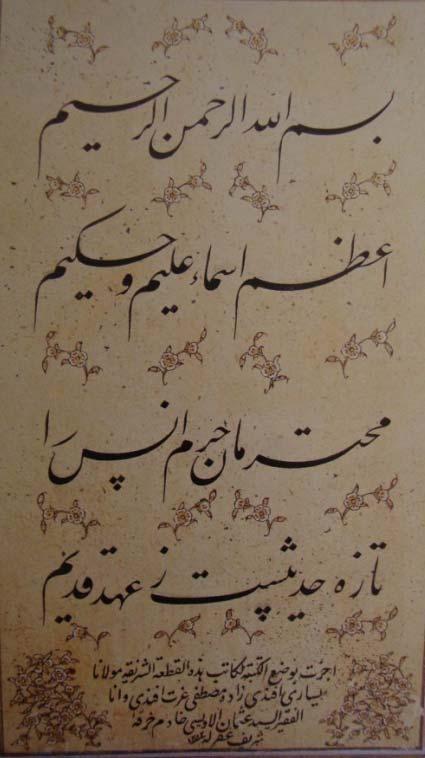 بسم الله الرحمن الرحيم
اعظم اسماء عليم وحكيم
محترمان حرم انس را
تازه حديثيست ز عهد قديم
اجزت بوضع الكتبة لكاتب هذه القطعة الشريفة مولانا
يساري افندي زاده مصطفى عزت افندي وانا
الفقير السيد عثمان الاويسي خادم خرقه
شريف غفر له